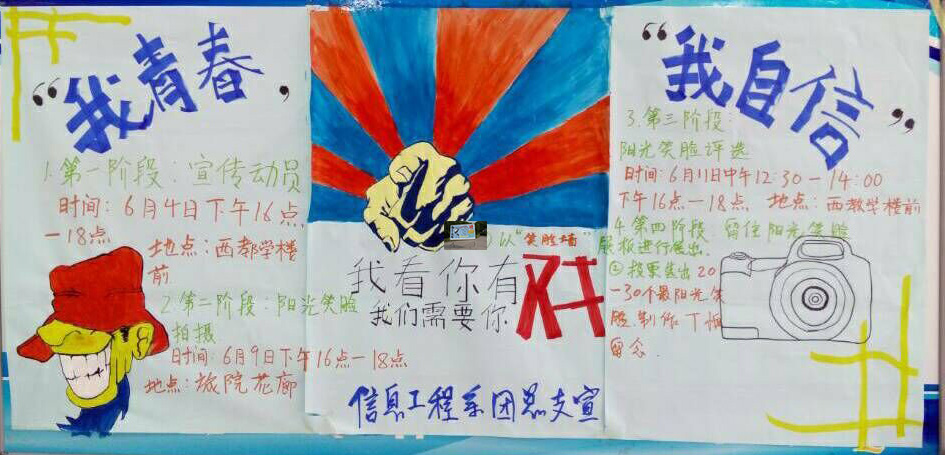 “我青春，
1.第一阶段：宣传动员
时间：6月4日下午16点
—18点
地点：西教学楼
前
2.第二阶段：阳光笑脸
拍摄
时间：6月9日下午16点—18点
地点：旅院花廊
我看你有戏
我们需要你
信息工程系团总支宣
“我自信”
3.第三阶段：
阳光笑脸评选
时间：6月11日中午12:30—14:00
下午16点—18点 地点：西教学楼前
4.第四阶段 留住阳光笑脸
①以“笑脸墙”展板进行展出.
②投票选出20
—30个最阳光笑
脸制作T恤
留念.